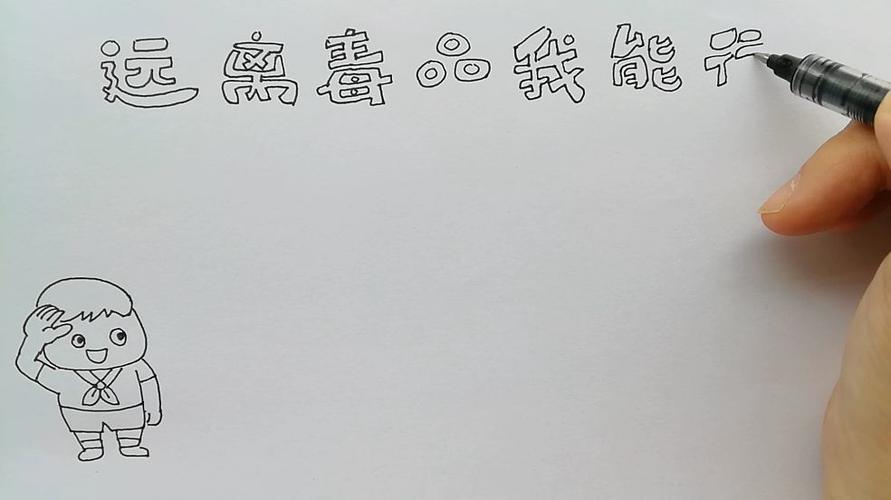 远离毒品我能行